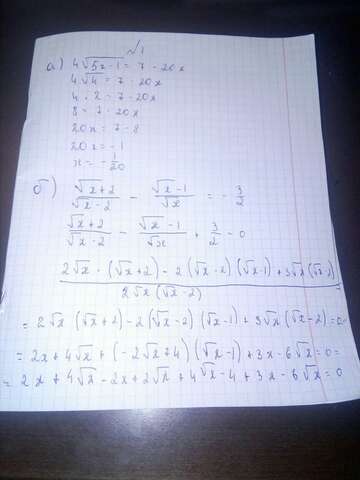 √1
а) 4√5x-1 = 7 - 20x
4√4 = 7 - 20x
4 · 2 = 7 - 20x
8 = 7 - 20x
20x = 7 - 8
20x = -1
x = -1/20
б) (√x+2)/(√x-2) - (√x-1)/√x = -3/2
(√x+2)/(√x-2) - (√x-1)/√x + 3/2 = 0
(2√x · (√x+2) - 2(√x-2)(√x-1) + 3√x(√x-2))/(2√x(√x-2))
= 2√x (√x+2) - 2(√x-2)(√x-1) + 3√x(√x-2) = 0 =
= 2x + 4√x + (-2√x+4)(√x-1) + 3x - 6√x = 0 =
= 2x + 4√x - 2x + 2√x + 4√x - 4 + 3x - 6√x = 0